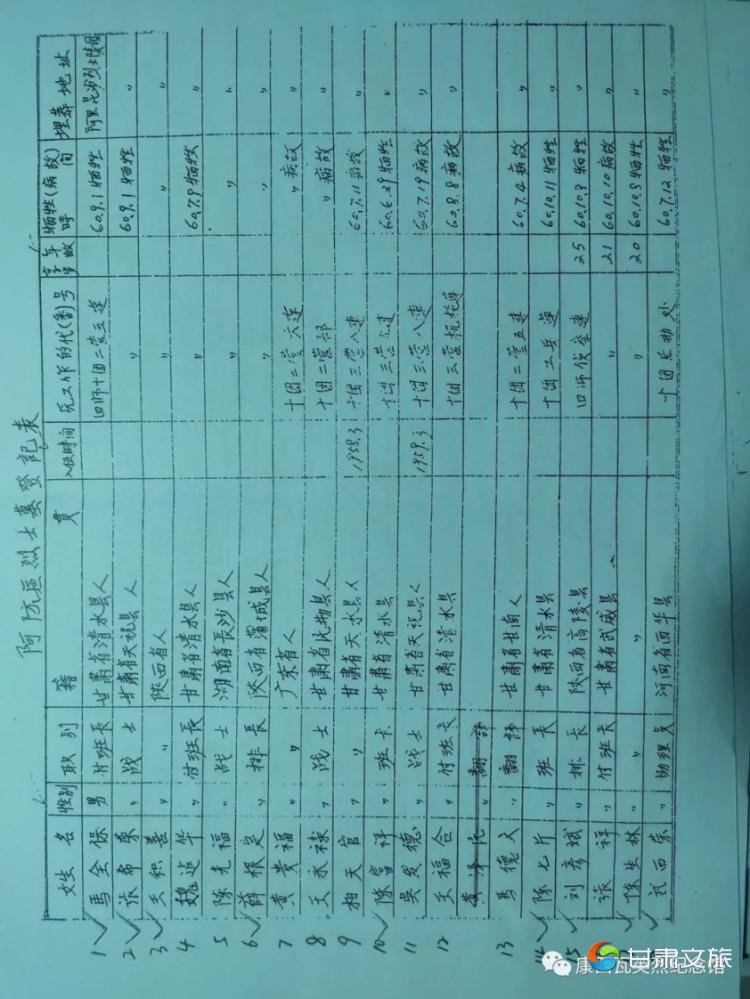 阿防区烈士墓登記表
姓名 性别 职别 籍貫 入伍时间 死工作的代(番)号 享年岁数 牺牲(病故)時间 埋葬地址
1 馬全保 男 付班长 甘肃省清水县人 四师十团二营五连 60.9.1牺牲 阿里昆沙烈士陵园
2 张希荣 〃 战士 甘肃省天祝县人 〃 60.9.1牺牲 〃
3 王积善 〃 〃 陕西省人 〃 〃 〃
4 魏逆华 〃 付班長 甘肃省清水县人 〃 60.7.9牺牲 〃
5 陈光福 〃 战士 湖南省長沙县人 〃 〃 〃
6 薛根定 〃 排長 陕西省蒲城县人 〃 〃 〃
7 黄贵福 〃 〃 广东省人 十团二营六连 〃病故 〃
8 王永禄 〃 战士 甘肃省 县人 十团二营部 〃病故 〃
9 相天官 〃 〃 甘肃省天水县人 1958.3 十团三营八连 60.7.11病故 〃
10 陈富祥 〃 班长 甘肃省清水县 十团三营 连 60.6.29牺牲 〃
11 吳发德 〃 战士 甘肃省天祝县人 1959.3 十团三营八连 60.7.19病故 〃
12 王福合 〃 付班长 甘肃省清水县 十团三营机炮连 60.8.8病故 〃
翻译
13 馬德义 〃 翻译 甘肃省甘南人 十团二营五连 60.7.4病故 〃
14 陈七斤 〃 班长 甘肃省清水县 十团工兵连 60.10.11牺牲 〃
5 刘彦斌 〃 排长 陕西省高陵县 四师侦察连 25 60.10.8牺牲 〃
张祥 〃 付班长 甘肃省武威县 〃 21 60.10.10病故 〃
陈生林 〃 〃 〃 〃 20 60.10.8牺牲 〃
西荣 〃 助理员 河南省西华县 十团长助处 60.7.12牺牲 〃
甘肃文旅
康西瓦英烈纪念馆